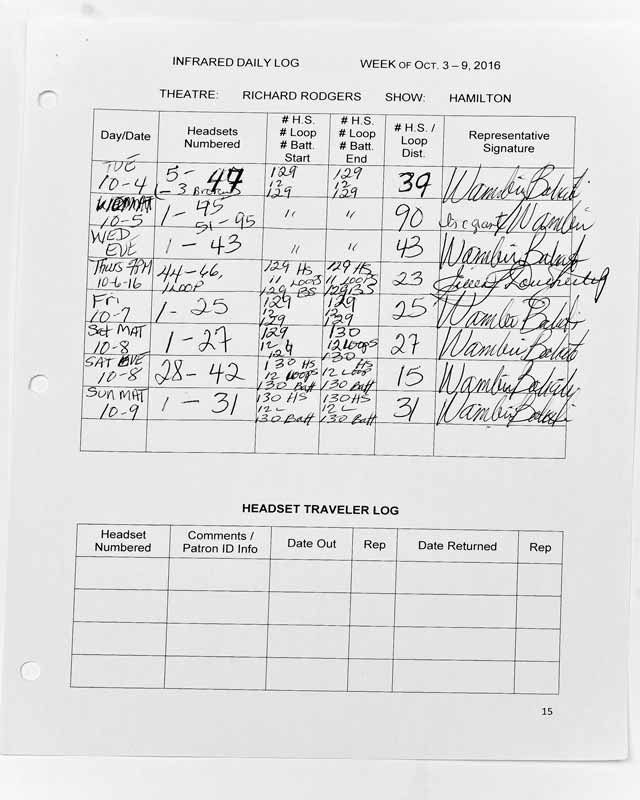 INFRARED DAILY LOG WEEK OF OCT. 3 – 9, 2016
THEATRE: RICHARD RODGERS SHOW: HAMILTON
Day/Date
Headsets
Numbered
# H.S.
# Loop
# Batt.
Start
# H.S.
# Loop
# Batt.
End
# H.S. /
Loop
Dist.
Representative
Signature
TUE
10-4
5 - 47
- 3 Broken
129
12
129
129
12
129
39
MAT
10-5
1 - 95
51 - 95
"
"
90
WED
EVE
1 - 43
"
"
43
Thurs 7PM
10-6-16
44-66,
1 LOOP
129 HS
11 LOOPS
129 BS
129 HS
11 LOOPS
129 BS
23
Fri
10-7
1 - 25
129
12
129
129
12
129
25
Sat MAT
10-8
1 - 27
129
12
130
12 LOOPS
130
27
SAT EVE
10-8
28 - 42
130 HS
12 LOOPS
130 Batt
HS
12 LOOP
130 Batt
15
SUN MAT
10-9
1 - 31
130 HS
12 L
130 Batt
130 HS
12 L
130 Batt
31
HEADSET TRAVELER LOG
Headset
Numbered
Comments /
Patron ID Info
Date Out
Rep
Date Returned
Rep
15